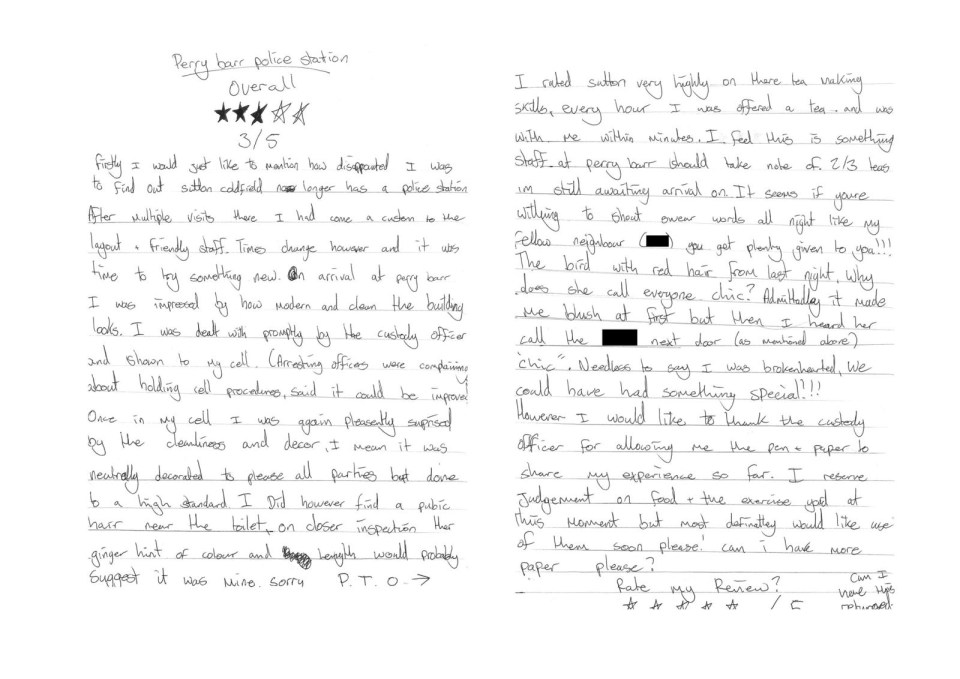 Perry barr police station
Overall
★★★☆☆
3/5
firstly I would just like to mention how disappointed I was
to find out sutton coldfield no longer has a police station
After multiple visits there I had come a custom to the
layout + friendly staff. Times change however and it was
time to try something new. On arrival at perry barr
I was impressed by how modern and clean the building
looks. I was dealt with promptly by the custody officer
and shown to my cell. (Arresting officers were complaining
about holding cell procedures, said it could be improved
Once in my cell I was again pleasently suprised
by the cleanliness and decor, I mean it was
neutrally decorated to please all parties but done
to a high standard. I Did however find a pubic
harr near the toilet, on closer inspection ther
ginger hint of colour and length would probably
suggest it was mine. sorry P.T.O →
I rated sutton very highly on there tea making
skills, every hour I was offered a tea. and was
with me within minutes. I feel this is something
staff at perry barr should take note of. 2/3 teas
im still awaiting arrival on. It seems if youre
willing to shout swear words all night like my
fellow neighbour ( ) you get plenty given to you!!!
The bird with red hair from last night, Why
does she call everyone chic? Admittadley it made
me blush at first but then I heard her
call the next door (as mentioned above)
"chic". Needless to say I was brokenhearted, We
could have had something special!!!!
However I would like to thank the custody
officer for allowing me the pen + paper to
share my experience so far. I reserve
judgement on food + the exercise yard at
this moment but most definatley would like use
of them soon please! can i have more
paper please?
Rate my Review?
☆ ☆ ☆ ☆ ☆ /5
Can I
have this
returned